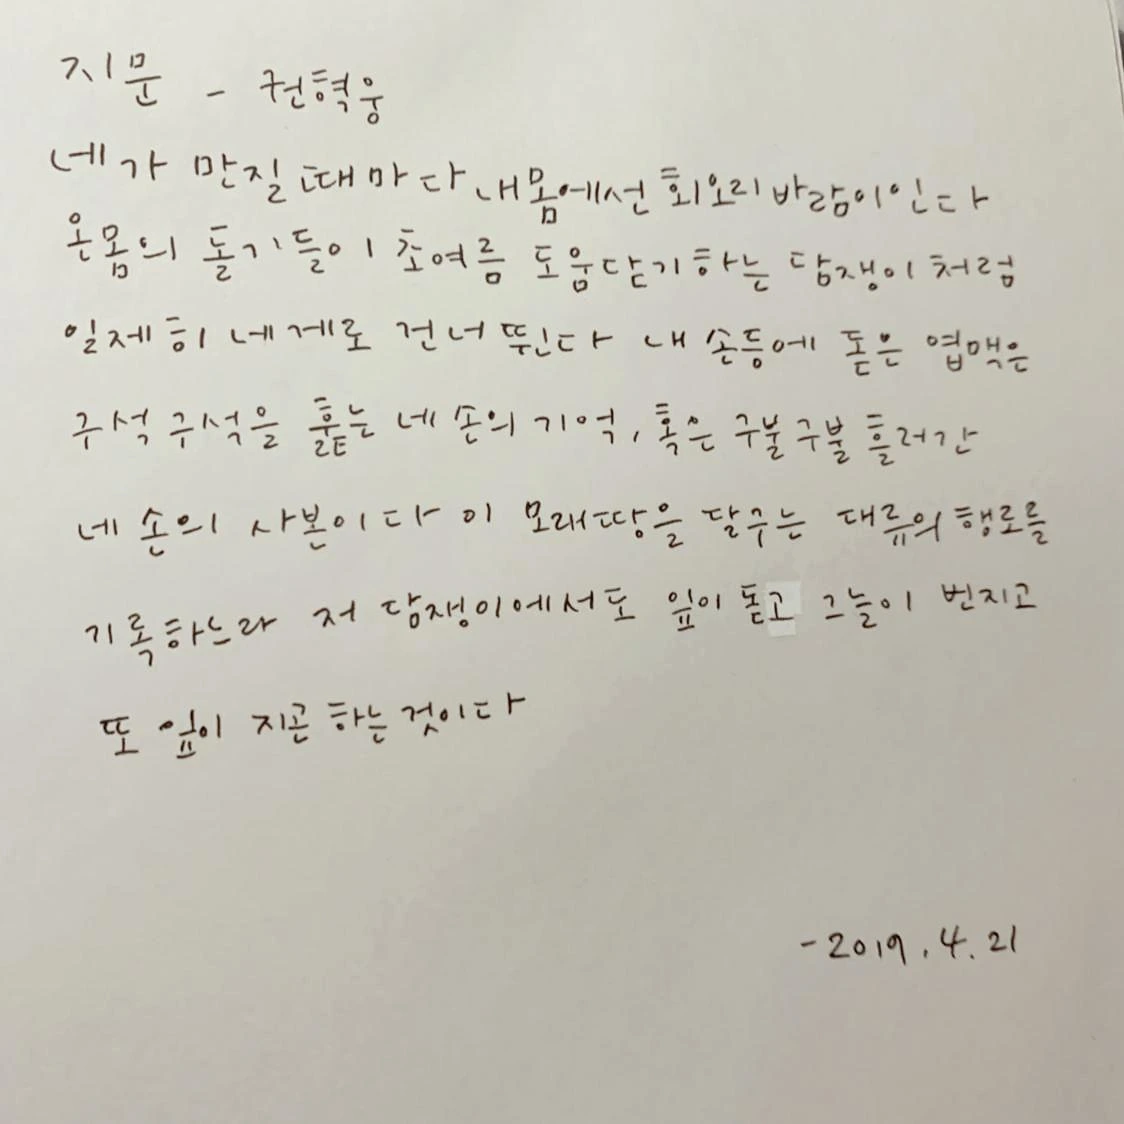 지문 - 권혁웅
네가 만질 때마다 내 몸에선 회오리바람이 인다
온몸의 돌기들이 초여름 도움닫기 하는 담쟁이처럼
일제히 네게로 건너뛴다 내 손등에 돋은 엽맥은
구석구석을 훑는 네 손의 기억, 혹은 구불구불 흘러간
네 손의 사본이다 이 모래땅을 달구는 대류의 행로를
기록하느라 저 담쟁이에서도 잎이 돋고 그늘이 번지고
또 잎이 지곤 하는 것이다
- 2019. 4. 21